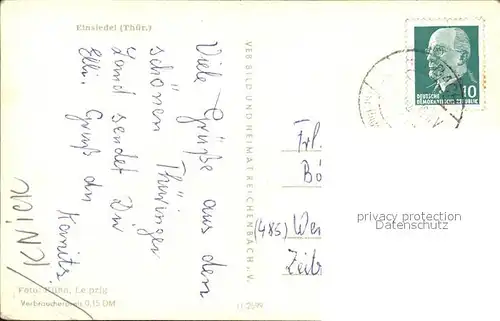 Einsiedel (Thür.)
Viele Grüße aus dem
schönen Thüringer
Land sendet Dir
Elli. Gruß an
KNICK
Foto: Kühn, Leipzig
Verbraucherpreis 0,15 DM
VEB BILD UND HEIMAT REICHENBACH i. V.
10
DEUTSCHE
DEMOKRATISCHE REPUBLIK
Frl.
Bö
(485) Wei
Zeitz
privacy protection
Datenschutz